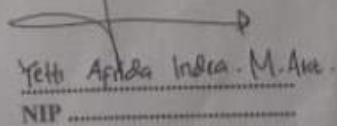 Yetti Afrida Indra. M.Akt.
NIP ..............................